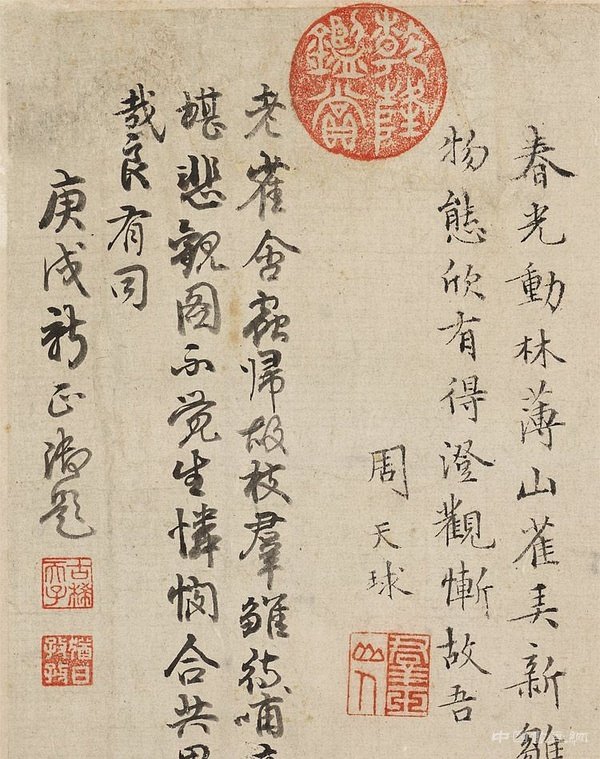 春光動林薄山雀美新雛
物態欣有得澄觀慚故吾
周天球
羣玉山人
乾隆鑑賞
老雀含蟲歸故枝羣雛待哺
堪悲觀圖不覺生憐憫合共
哉良有同
庚戌新正御題
古稀天子
猶日孜孜